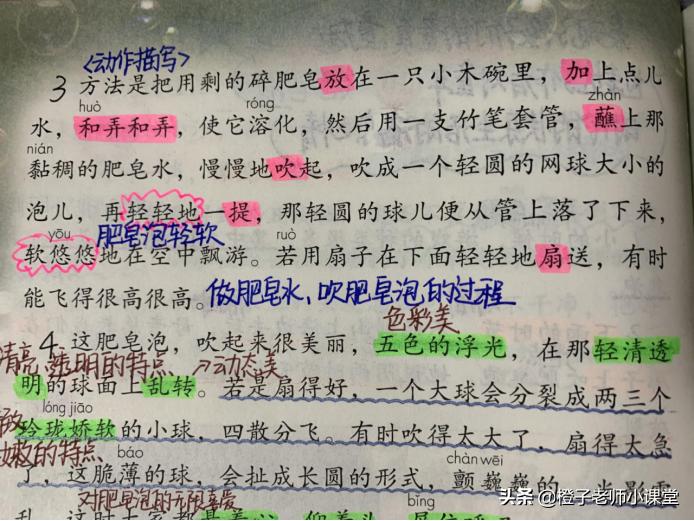 <动作描写>
3 方法是把用剩的碎肥皂放在一只小木碗里，加上点儿
huò róng zhàn
水，和弄和弄，使它溶化，然后用一支竹笔套管，蘸上那
nián
黏稠的肥皂水，慢慢地吹起，吹成一个轻圆的网球大小的
泡儿，再轻轻地一提，那轻圆的球儿便从管上落了下来，
yōu 肥皂泡轻软 ruò
软悠悠地在空中飘游。若用扇子在下面轻轻地扇送，有时
能飞得很高很高。做肥皂水，吹肥皂泡的过程
色彩美
4 这肥皂泡，吹起来很美丽，五色的浮光，在那轻清透
清亮、透明的特点 →动态美
明的球面上乱转。若是扇得好，一个大球会分裂成两三个
lóng jiāo
玲珑娇软的小球，四散分飞。有时吹得太大了，扇得太急
的特点 báo chàn wēi
了，这脆薄的球，会扯成长圆的形式，颤巍巍的，光影零
对肥皂泡的无限喜爱 bǐng
乱
头条 @橙子老师小课堂